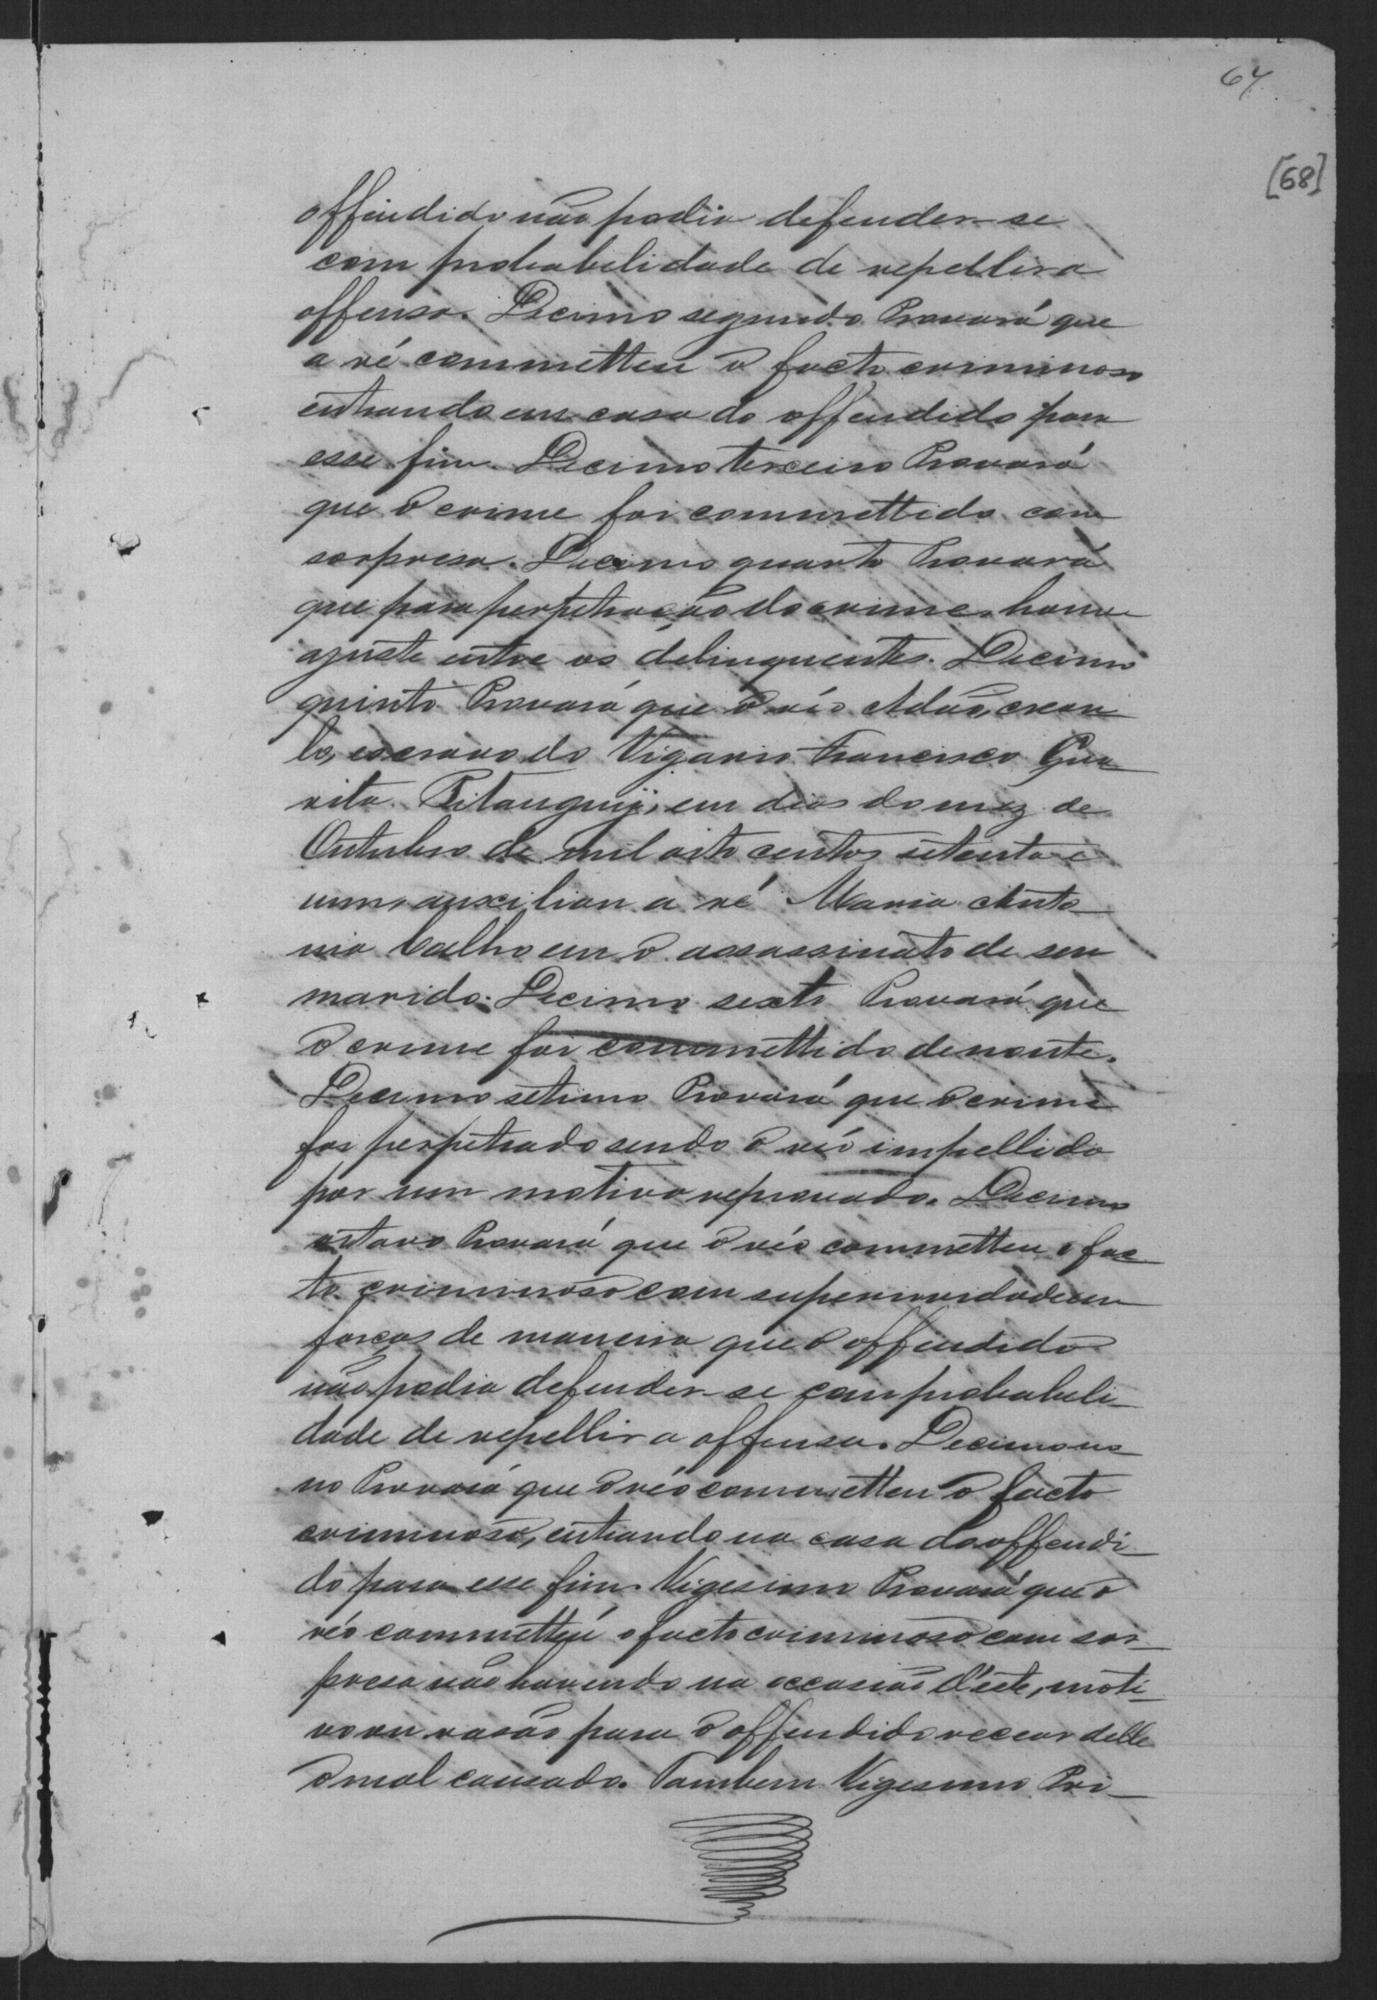 67
[68]
offendido não podia defender-se
com probabilidade de repellir a
offensa. Decimo segundo Provará que
a ré commetteu o facto criminoso
entrando em casa do offendido para
esse fim. Decimo terceiro Provará
que o crime foi commettido com
sorpresa. Decimo quarto Provará
que para perpetração do crime, houve
ajuste entre os delinquentes. Decimo
quinto Provará que o réo Adão, creou
lo, escravo do Vigario Francisco Gua
rita Pitanguy, em dias do mez de
Outubro de mil oito centos setenta e
um, auxiliou a ré Maria Anto
nia Calho em o assassinato de seu
marido. Decimo sexto Provará que
o crime foi commettido de noute.
Decimo setimo Provará que o crime
foi perpetrado sendo o réo impellido
por um motivo reprovado. Decimo
oitavo Provará que o réo commetteu o fac
to criminoso com superioridade em
forças de maneira que o offendido
não podia defender-se com probabili
dade de repellir a offensa. Decimo no
no Provará que o réo commetteu o facto
criminoso, entrando na casa do offendi
do para esse fim. Vigesimo Provará que o
réo commetteu o facto criminoso com sor
presa não havendo na occasião d'este, moti
vo ou rasão para o offendido recear delle
o mal causado. Tambem Vigesimo Pri